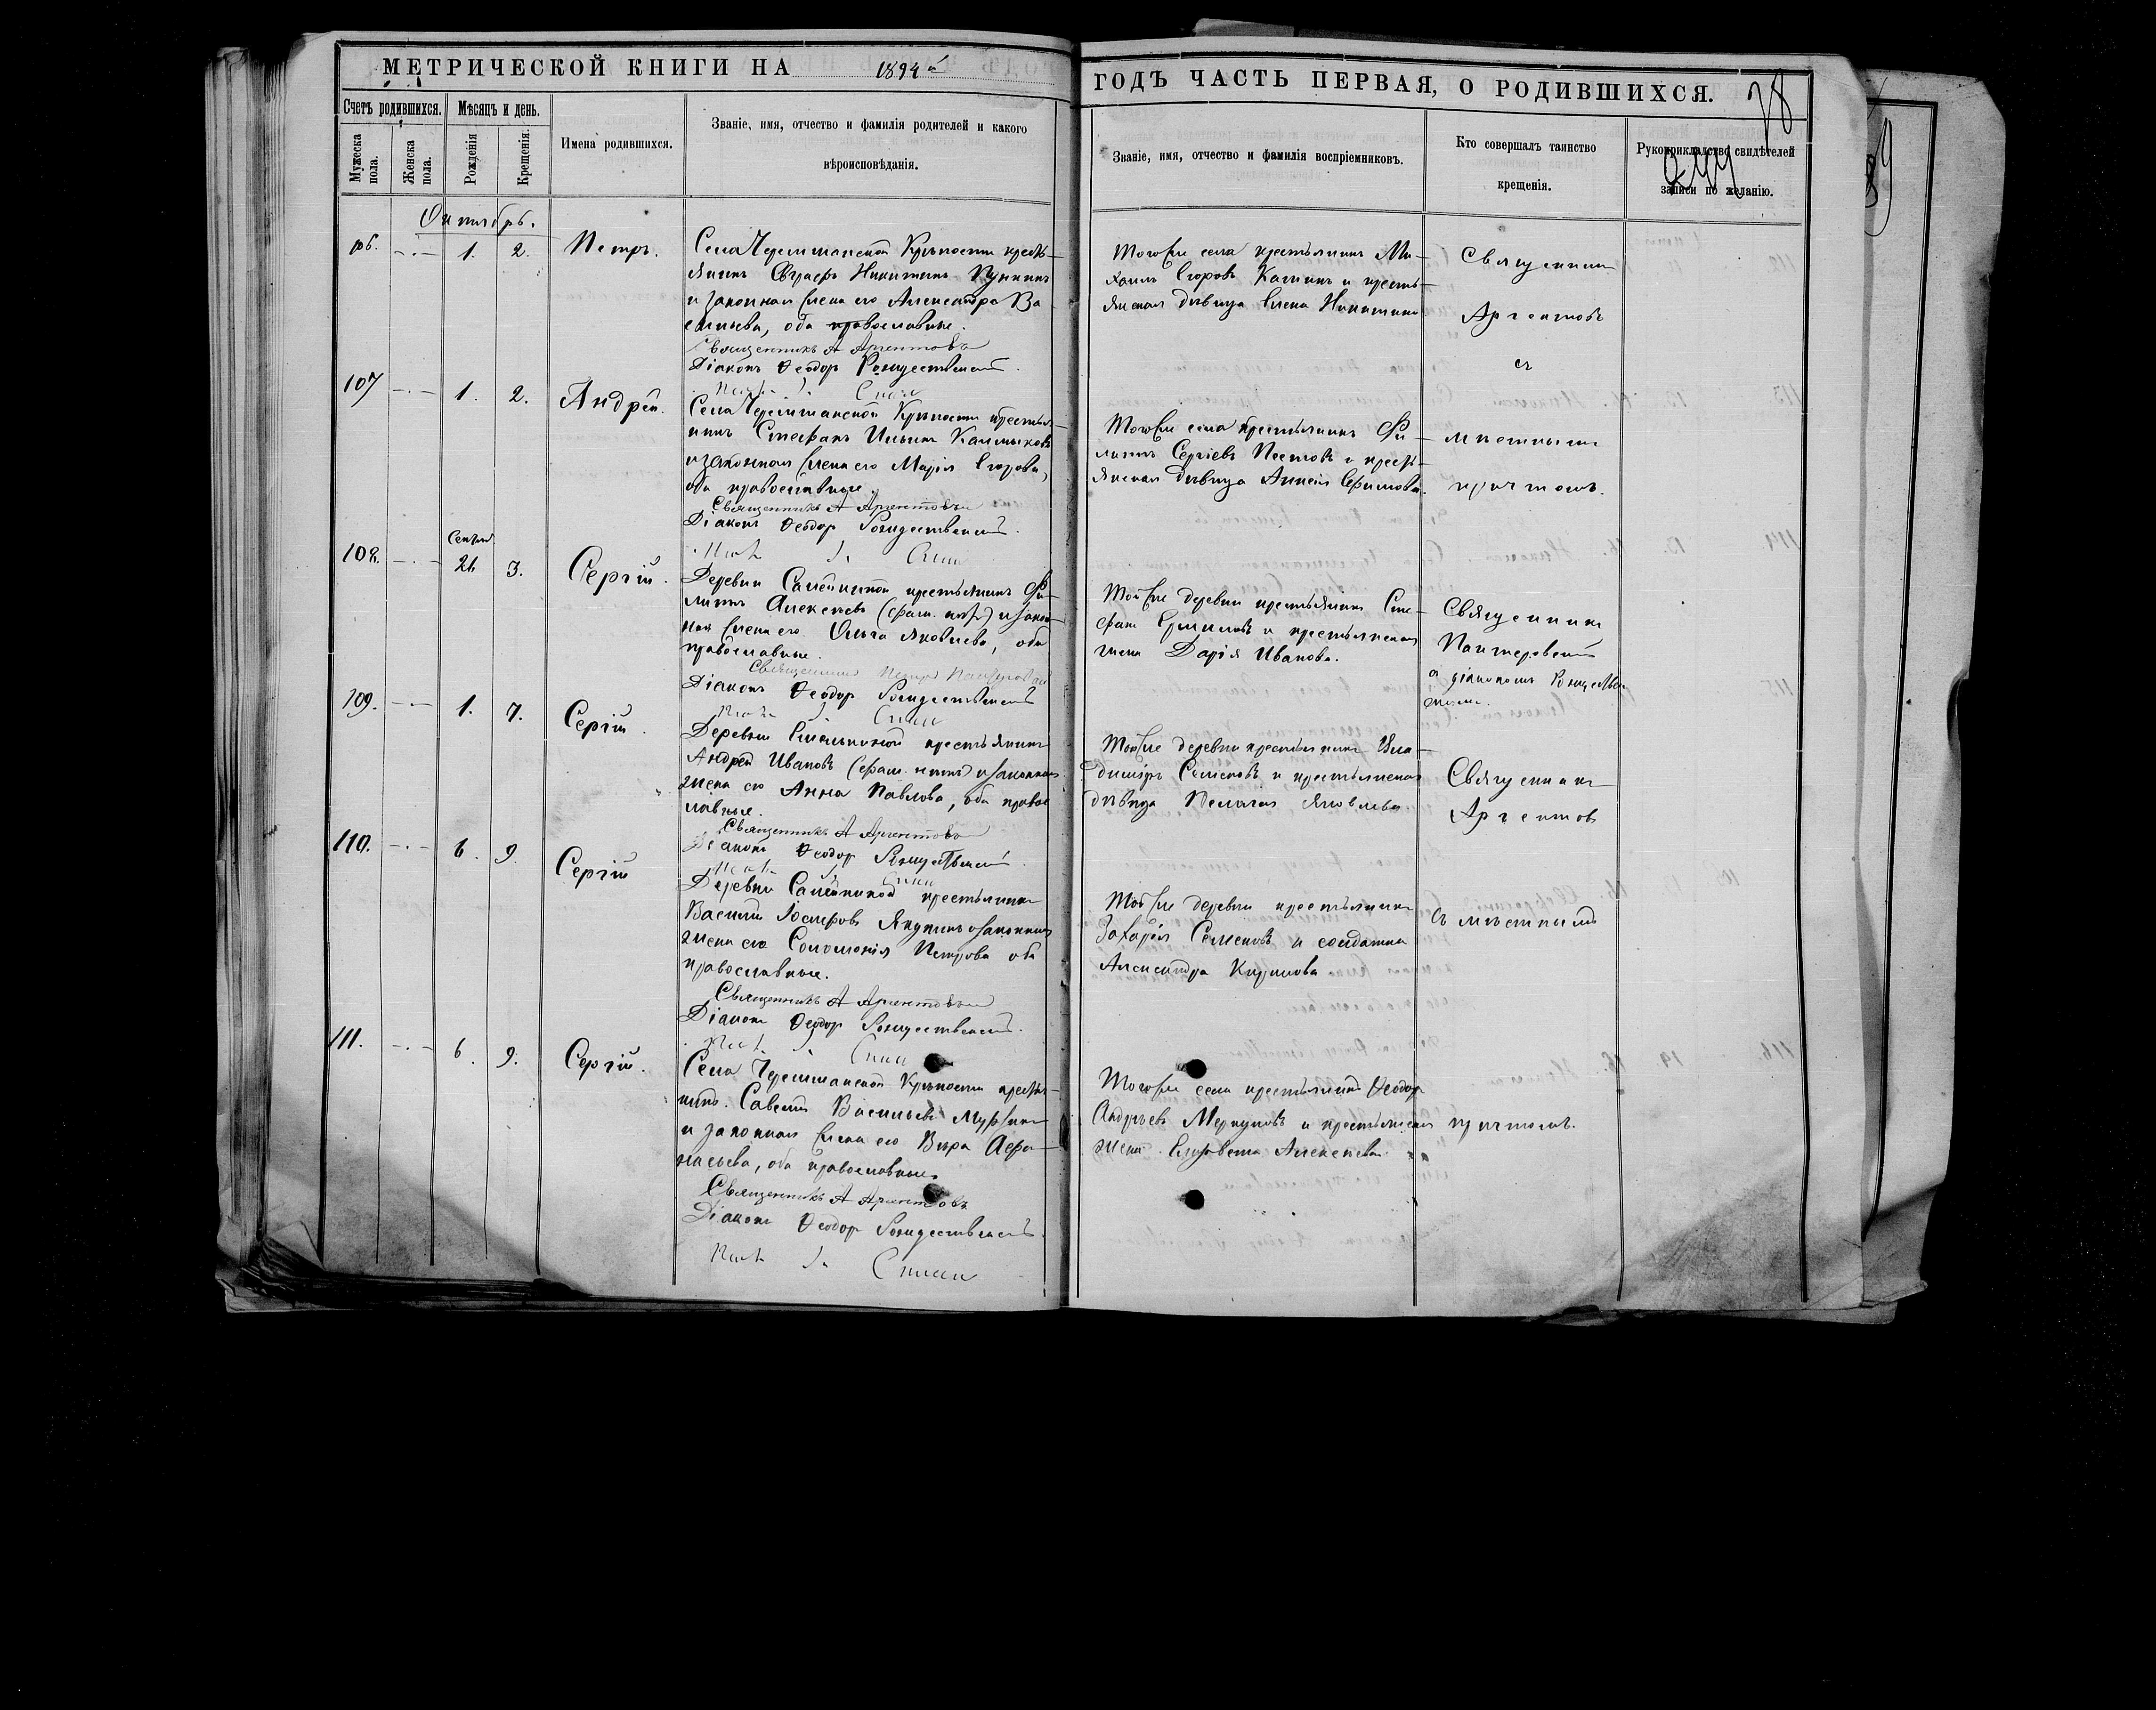 МЕТРИЧЕСКОЙ КНИГИ НА 1894й
ГОДЪ ЧАСТЬ ПЕРВАЯ, О РОДИВШИХСЯ.
78
244
Счетъ родившихся.
Мѣсяцъ и день.
Мужеска пола.
Женска пола.
Рожденія
Крещенія.
Имена родившихся.
Званіе, имя, отчество и фамилія родителей и какого
вѣроисповѣданія.
Званіе, имя, отчество и фамилія воспріемниковъ.
Кто совершалъ таинство
крещенія.
Рукоприкладство свидѣтелей
записи по желанію.
Октябрь.
106. 1. 2. Петръ.
Села Черемшанской Крѣпости кресть-
янинъ Никитинъ
и законная жена его Александра Ва-
сильева, оба православные.
Священникъ А Аргентовъ
Діаконъ Ѳеодор Рождественскій.
Тогоже села крестьянинъ Ми-
хаилъ Егоровъ и кресть-
янская дѣвица Елена Никитина
Священникъ
Аргентовъ
съ
мѣстнымъ
причтомъ.
107 1. 2. Андрей.
Села Черемшанской Крѣпости крестья-
нинъ Стефанъ Ильинъ Калмыковъ
и законная жена его Марія Егорова,
оба православные.
Священникъ А Аргентовъ
Діаконъ Ѳеодор Рождественскій.
Тогоже села крестьянинъ Фи-
липпъ Сергіевъ Пестовъ и кресть-
янская дѣвица Ефимова.
108. 3. Сергій.
Деревни крестьянинъ Фи-
липпъ Алексѣевъ (фам. нѣтъ) и закон-
ная жена его Ольга Яковлева, оба
православные.
Священникъ Петръ
Діаконъ Ѳеодор Рождественскій
Тойже деревни крестьянинъ Сте-
фанъ и крестьянская
жена Дарія Иванова.
Священникъ
Пантеровскій
съ діакономъ Рождествен-
скимъ.
109. 1. 7. Сергій.
Деревни крестьянинъ
Андрей Ивановъ (фам. нѣтъ) и законная
жена его Анна Павлова, оба правос
лавные.
Священникъ А Аргентовъ
Діаконъ Ѳеодор Рождественскій
Тойже деревни крестьянинъ Вла-
диміръ Семеновъ и крестьянская
дѣвица Пелагія Яковлева
Священникъ
Аргентовъ
110. 6. 9. Сергій
Деревни крестьянинъ
Василій и законная
жена его Соломонія Петрова оба
православные.
Священникъ А Аргентовъ
Діаконъ Ѳеодор Рождественскій.
Тойже деревни крестьянинъ
Захарія Семеновъ и солдатка
Александра Кирилова
съ мѣстнымъ
111. 6. 9. Сергій.
Села Черемшанской Крѣпости крестья-
нинъ Савелій Васильевъ Мурзинъ
и законная жена его Вѣра Афа-
насьева, оба православные.
Священникъ А Аргентовъ
Діаконъ Ѳеодор Рождественскій.
Тогоже села крестьянинъ Ѳеодоръ
Андреевъ Меркуловъ и крестьянская
жена Елизавета Алексѣева
причтомъ.